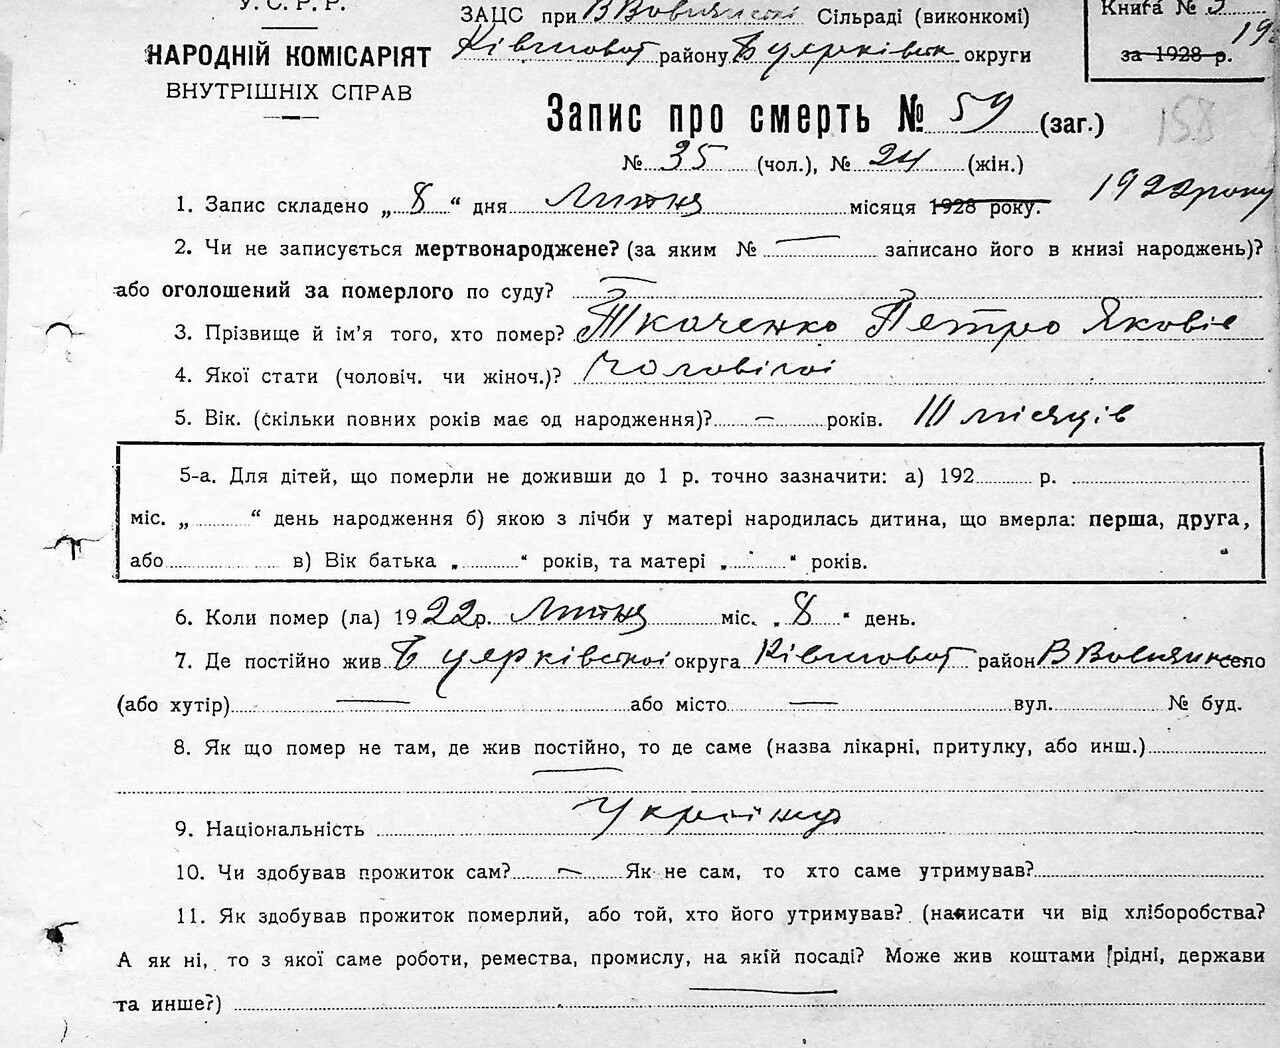 У.С.Р.Р.
НАРОДНІЙ КОМІСАРІЯТ
ВНУТРІШНІХ СПРАВ
ЗАЦС при Сільраді (виконкомі)
району округи
Книга № 3
за 1928 р.
Запис про смерть № 59 (заг.)
158
№ 35 (чол.), № 24 (жін.)
1. Запис складено „ 8 “ дня Липня місяця 1928 року. 1922 року
2. Чи не записується мертвонароджене? (за яким № — записано його в книзі народжень)?
або оголошений за померлого по суду? —
3. Прізвище й ім'я того, хто помер? Ткаченко Петро Яковів
4. Якої стати (чоловіч. чи жіноч.)? Чоловічої
5. Вік. (скільки повних років має од народження)? — років. місяців
5-а. Для дітей, що померли не доживши до 1 р. точно зазначити: а) 192 р.
міс. „ “ день народження б) якою з лічби у матері народилась дитина, що вмерла: перша, друга,
або в) Вік батька „ “ років, та матері „ “ років.
6. Коли помер (ла) 1922 р. Липня міс. „ 8 “ день.
7. Де постійно жив округа район село
(або хутір) — або місто — вул. № буд.
8. Як що помер не там, де жив постійно, то де саме (назва лікарні, притулку, або инш.)
—
9. Національність
10. Чи здобував прожиток сам? — Як не сам, то хто саме утримував?
11. Як здобував прожиток померлий, або той, хто його утримував? (написати чи від хліборобства?
А як ні, то з якої саме роботи, ремества, промислу, на якій посаді? Може жив коштами [рідні, держави
та инше?) —